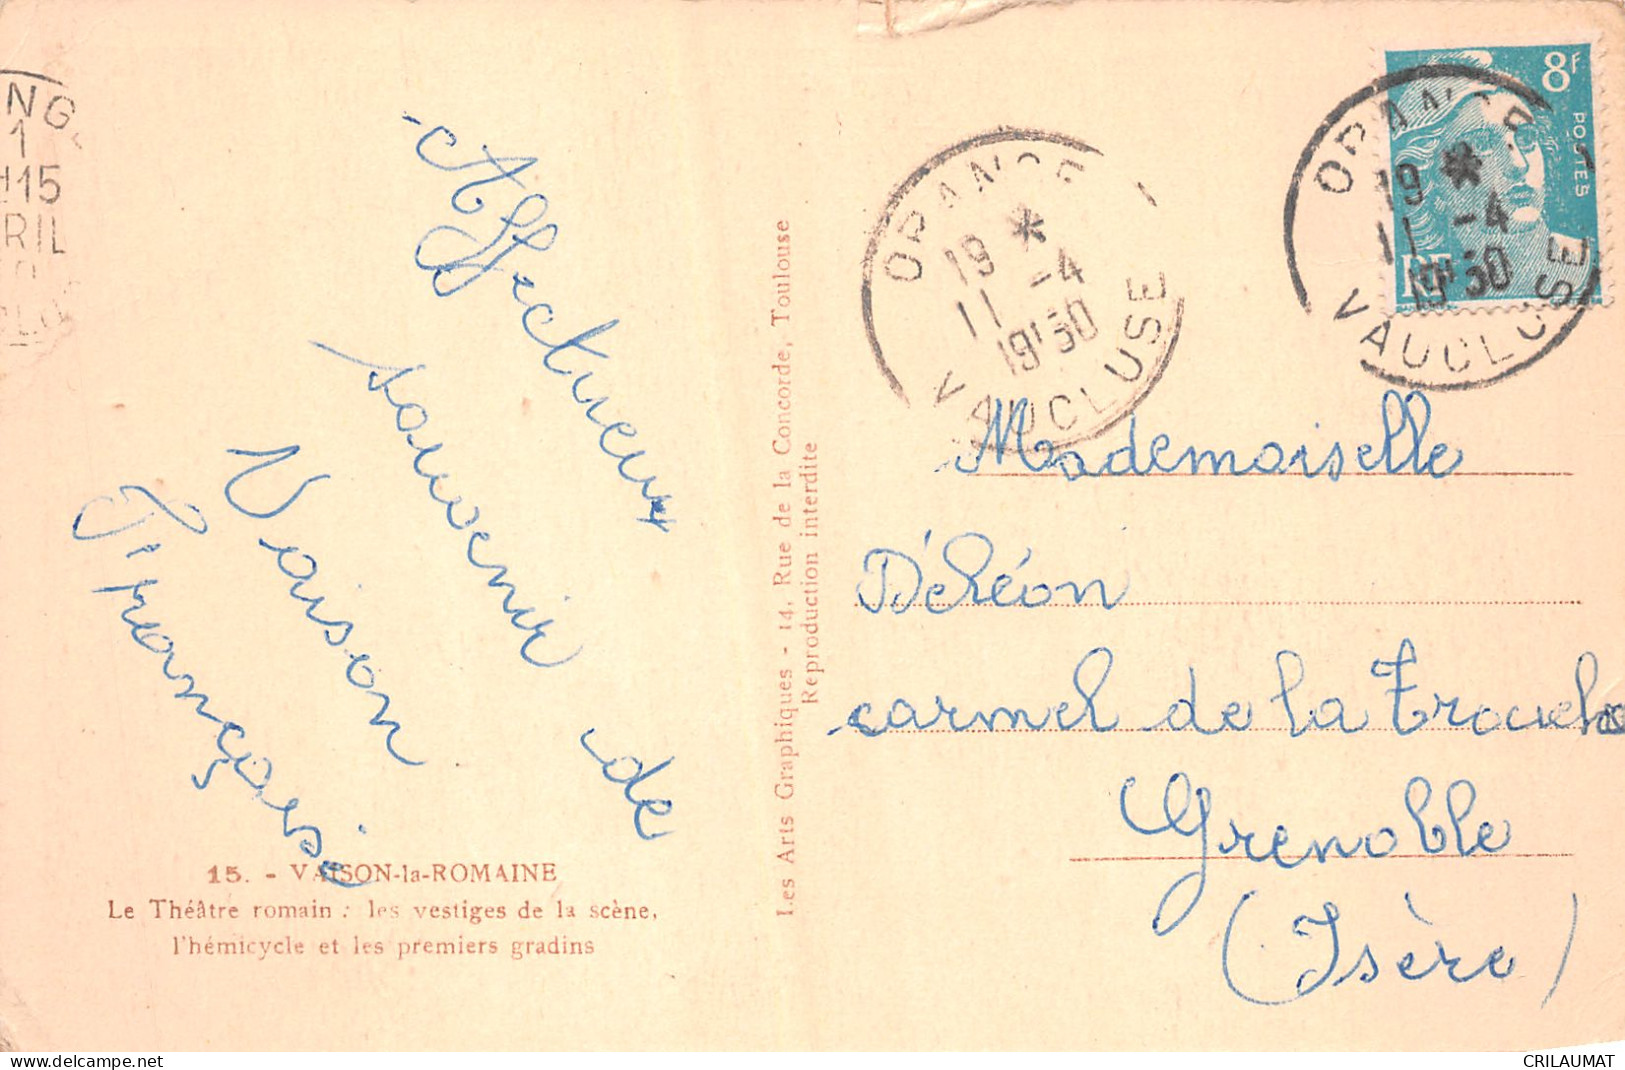 Affectueux
souvenir de
Vaison
Françoise
15. - VAISON-la-ROMAINE
Le Théâtre romain : les vestiges de la scène,
l'hémicycle et les premiers gradins
Les Arts Graphiques - 14, Rue de la Concorde, Toulouse
Reproduction interdite
ORANGE
19 *
11 -4
1950
VAUCLUSE
8F
POSTES
RF
ORANGE
19 *
11 -4
1950
VAUCLUSE
Mademoiselle
Déléon
carmel de la Tronche
Grenoble
(Isère)
www.delcampe.net
CRILAUMAT